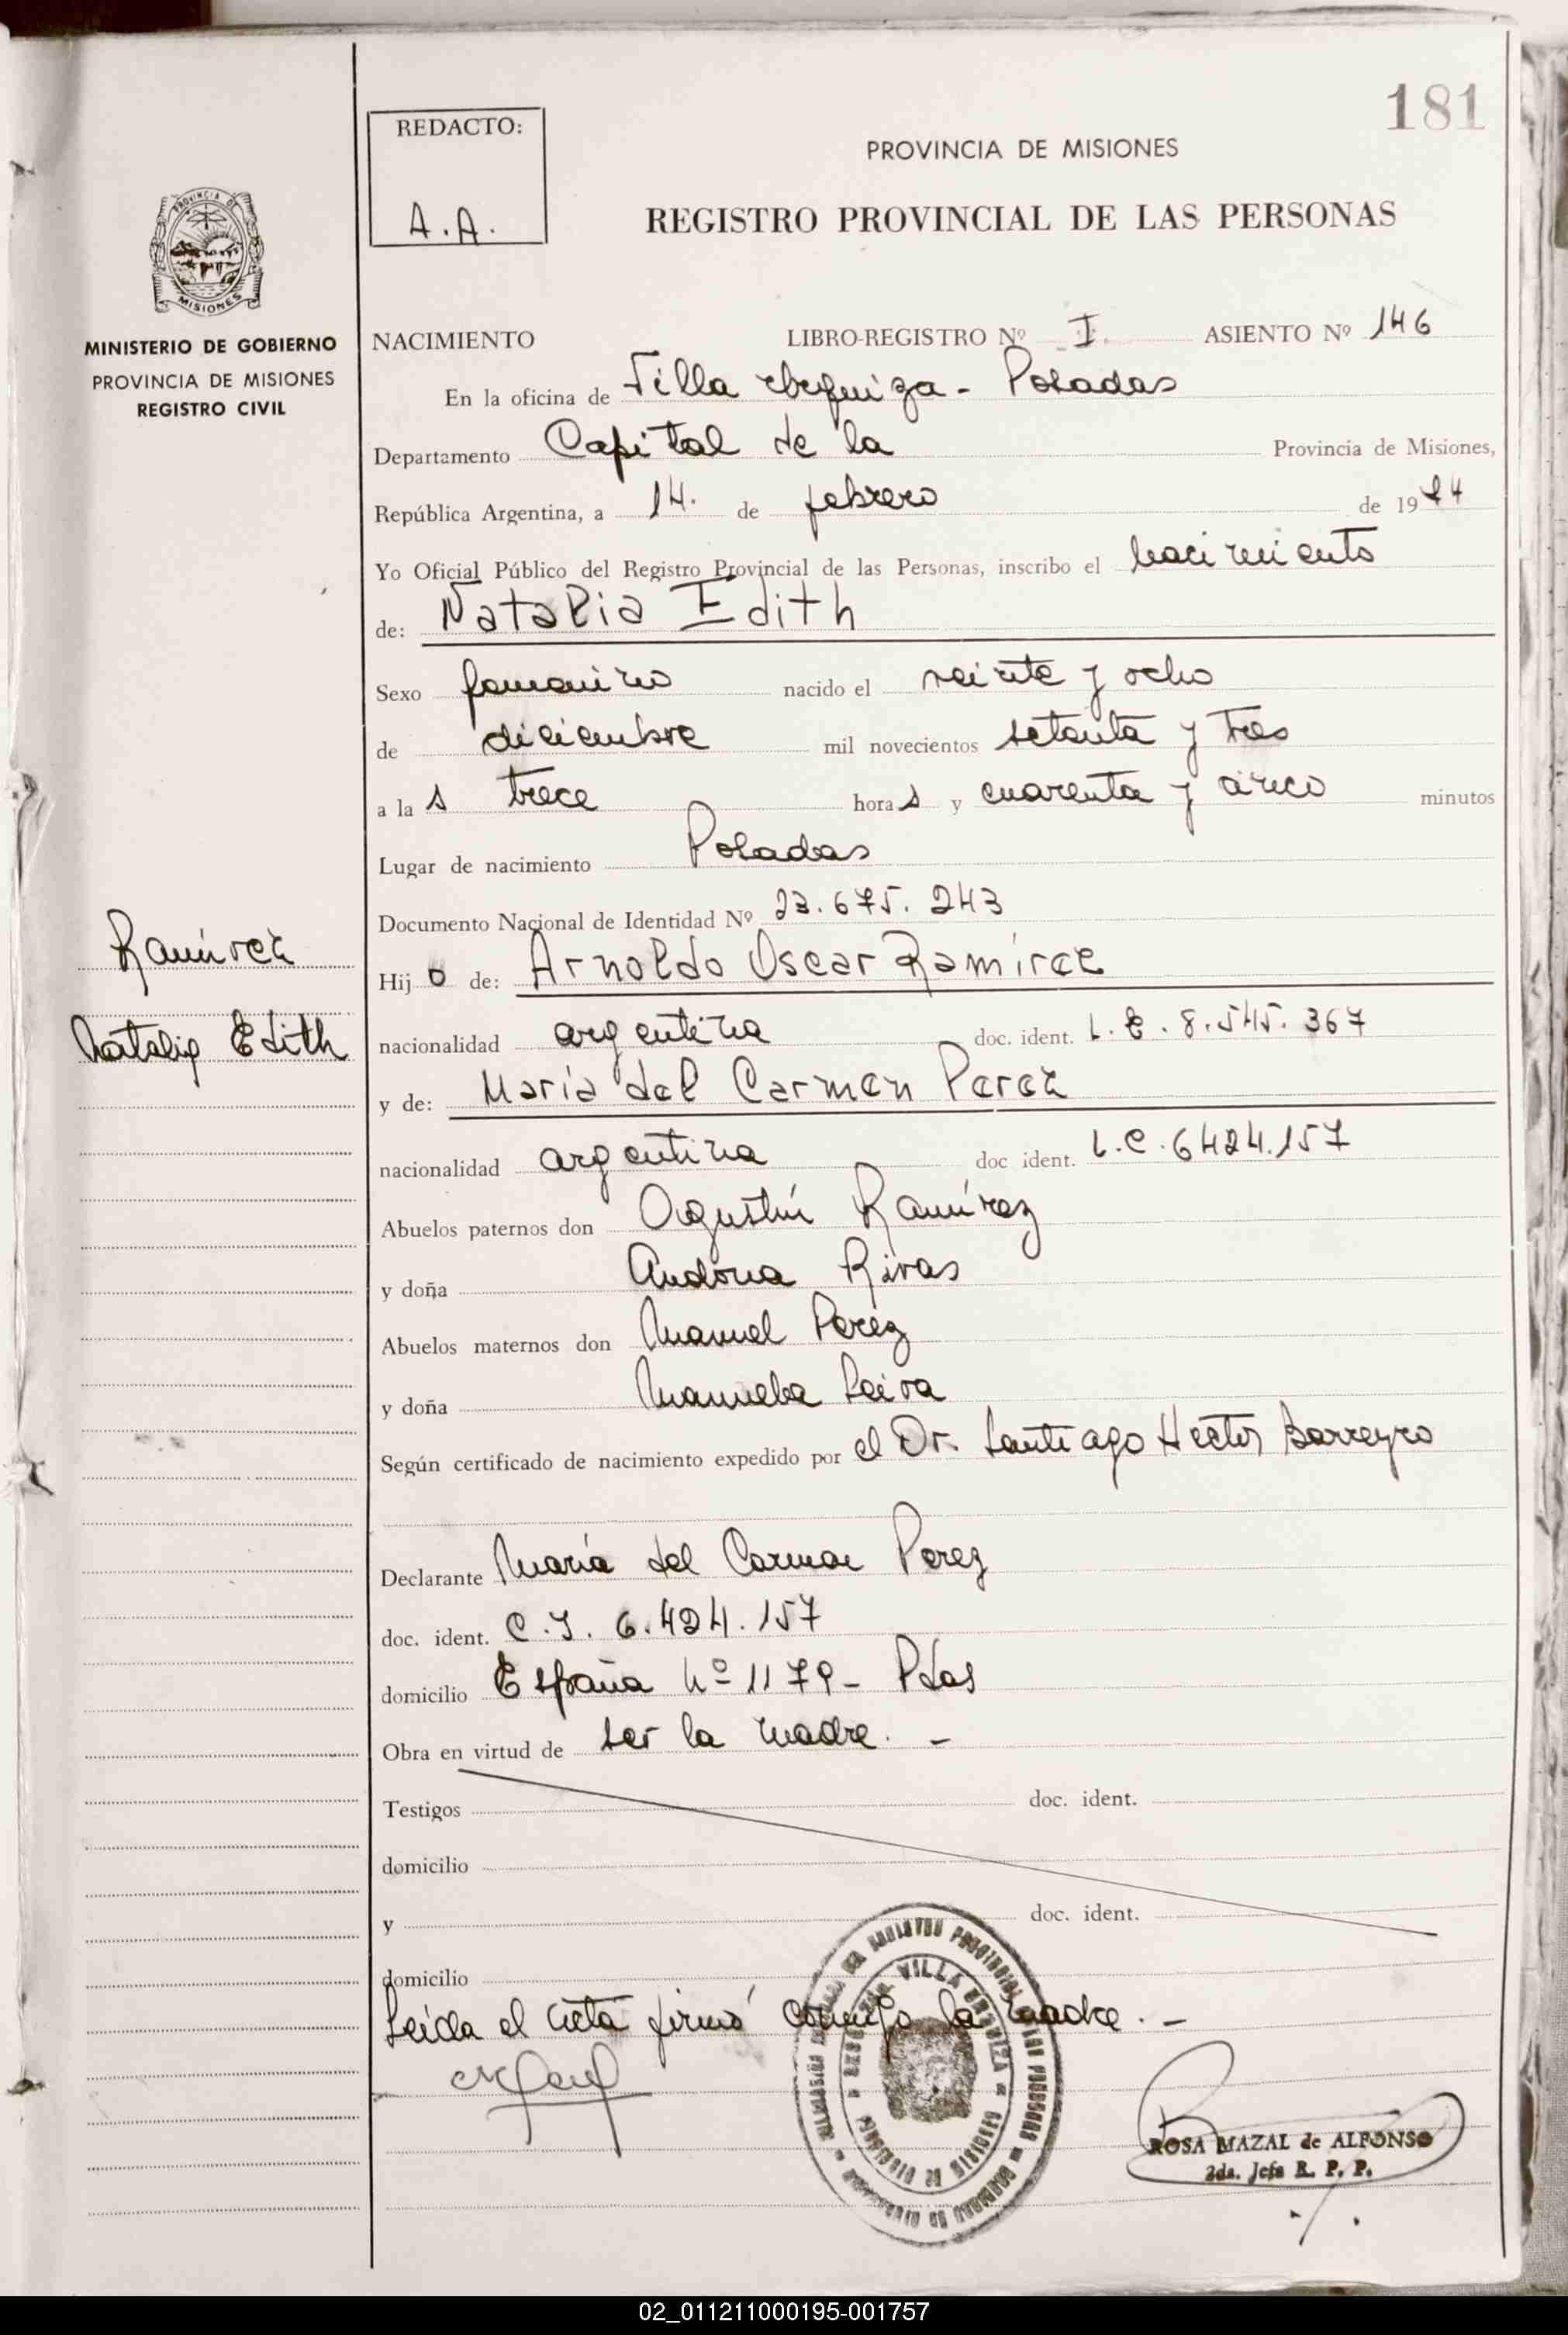 181
REDACTO:
A.A.
PROVINCIA DE MISIONES
REGISTRO PROVINCIAL DE LAS PERSONAS
PROVINCIA DE
MISIONES
MINISTERIO DE GOBIERNO
PROVINCIA DE MISIONES
REGISTRO CIVIL
NACIMIENTO LIBRO-REGISTRO Nº I. ASIENTO Nº 146
En la oficina de Villa Urquiza - Posadas
Departamento Capital de la Provincia de Misiones,
República Argentina, a 14. de febrero de 1974
Yo Oficial Público del Registro Provincial de las Personas, inscribo el nacimiento
de: Natalia Edith
Sexo femenino nacido el veinte y ocho
de diciembre mil novecientos setenta y tres
a la s trece hora s y cuarenta y cinco minutos
Lugar de nacimiento Posadas
Documento Nacional de Identidad Nº 23.675.243
Ramírez
Natalia Edith
Hij o de: Arnoldo Oscar Ramírez
nacionalidad argentina doc. ident. L.E. 8.545.367
y de: María del Carmen Perez
nacionalidad argentina doc ident. L.C. 6424.157
Abuelos paternos don Agustín Ramírez
y doña Andona Rivas
Abuelos maternos don Manuel Perez
y doña Manuela Leiva
Según certificado de nacimiento expedido por el Dr. Santiago Hector Barreyro
Declarante María del Carmen Perez
doc. ident. C.I. 6.424.157
domicilio España Nº 1179 - Pdas
Obra en virtud de ser la madre. -
Testigos doc. ident.
domicilio
y doc. ident.
domicilio
Leida el acta firmó conmigo la madre. -
VILLA URQUIZA
ROSA MAZAL de ALFONSO
2da. Jefa R. P. P.
02_011211000195-001757